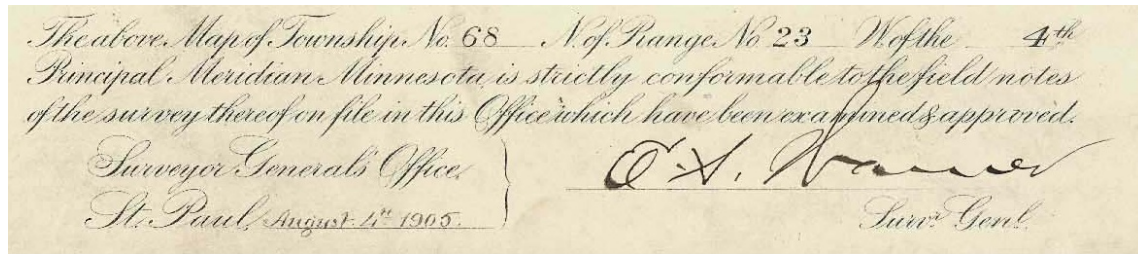 The above Map of Township No. 68 N. of Range No 23 W. of the 4th
Principal Meridian Minnesota, is strictly conformable to the field notes
of the survey thereof on file in this Office which have been examined & approved.
Surveyor General's Office,
St. Paul, August 4th 1905.
E. S. Warner
Survr. Genl.